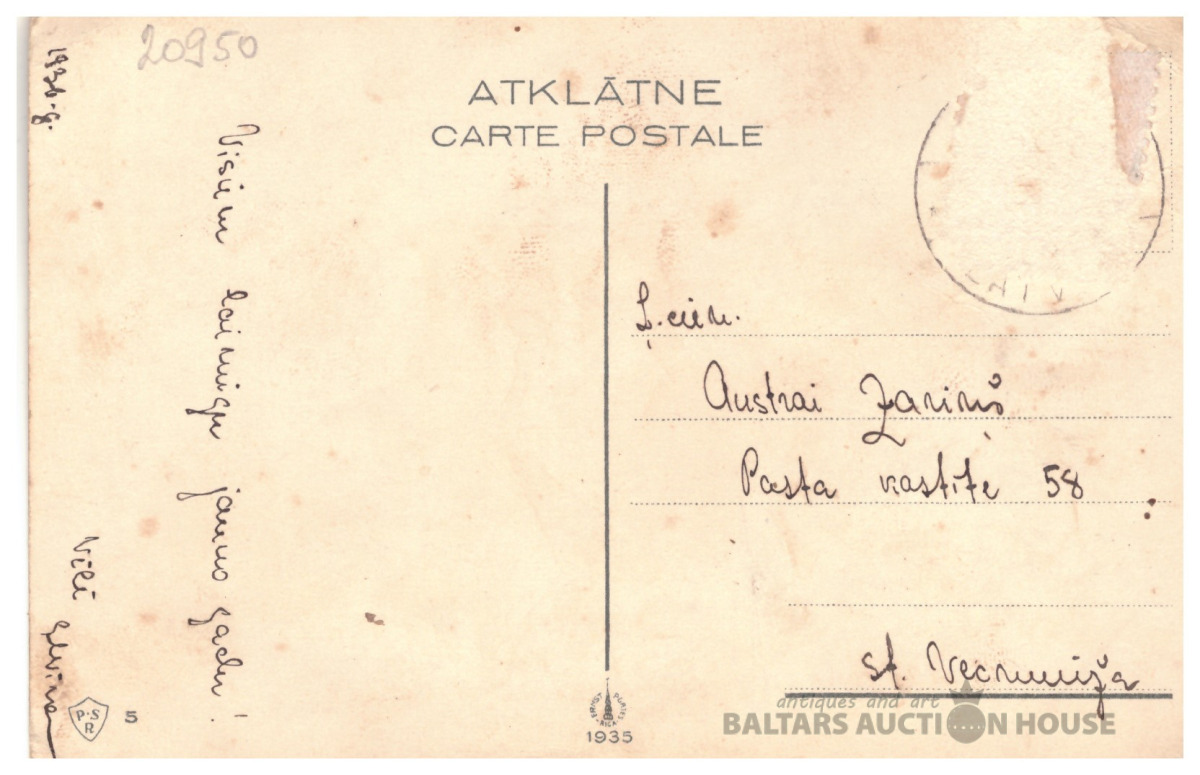 20950
1936-g.
ATKLĀTNE
CARTE POSTALE
Visiem laimīgu jauno gadu!
Vēlē
Elvira
Ļ.cien.
Austrai Zariņš
Pasta kastīte 58
st. Vecmuiža
P·S
R
5
1935
antiques and art
BALTARS AUCTION HOUSE